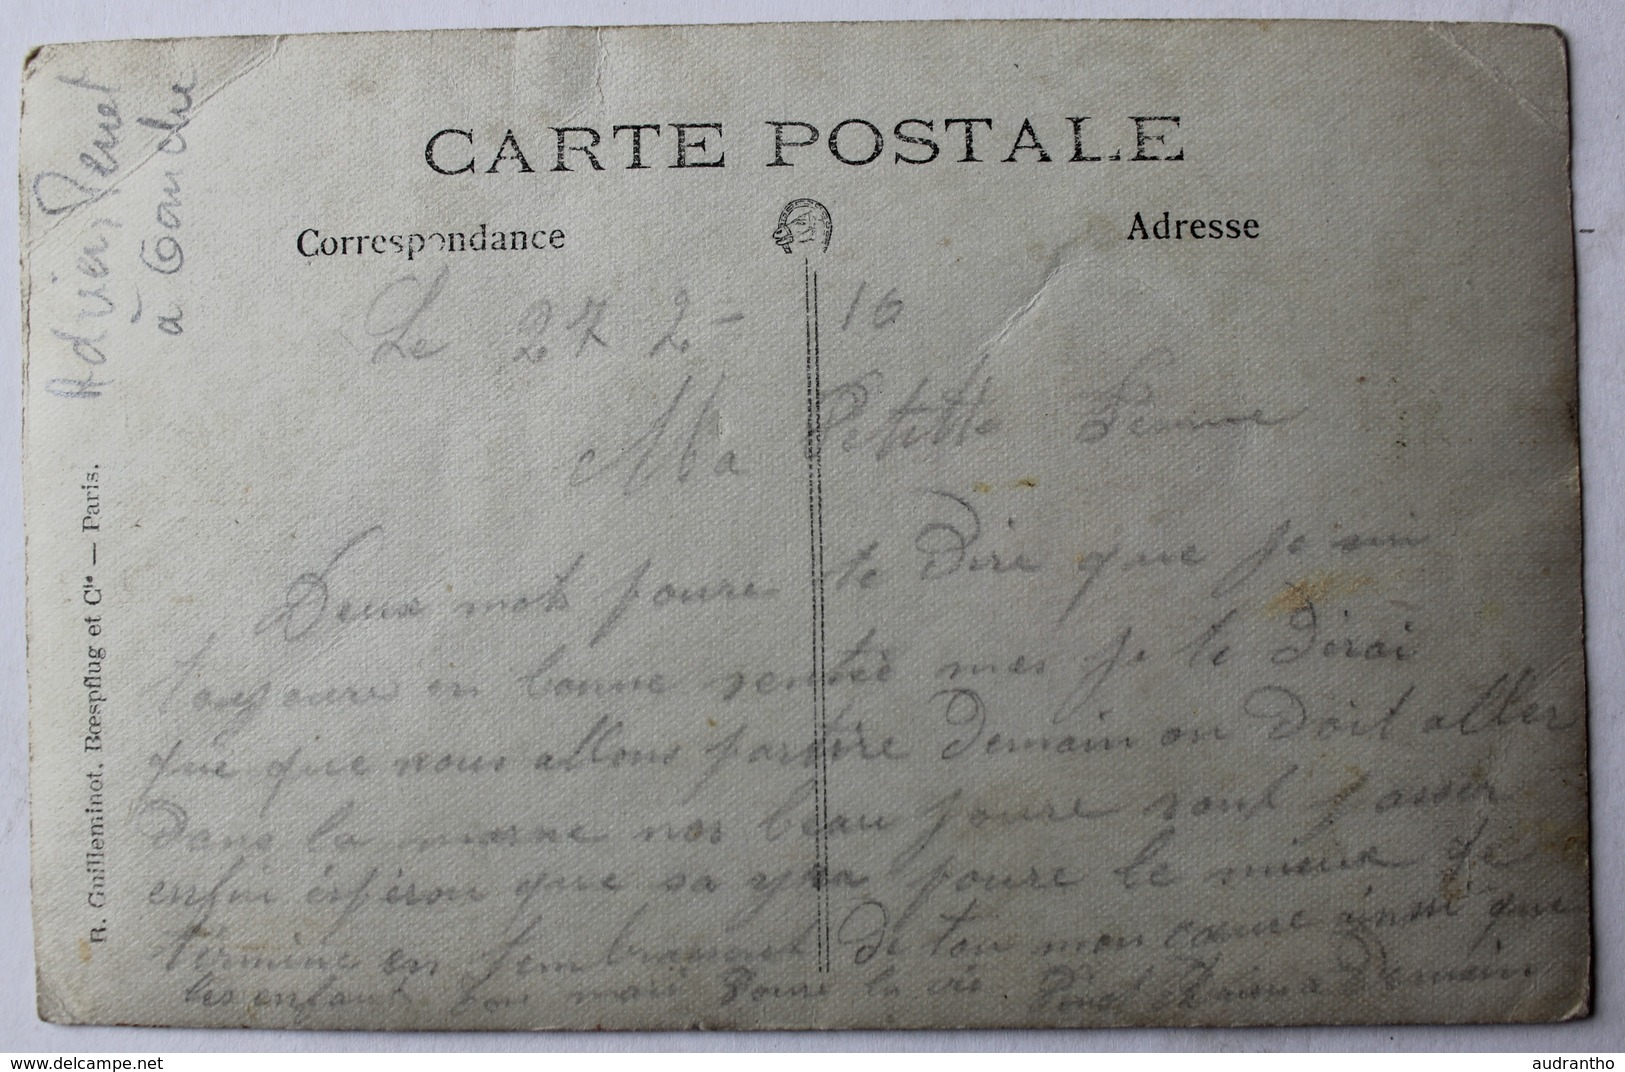 Adrien Penet
à
CARTE POSTALE
Correspondance
Adresse
R. Guilleminot, Bœspflug et Cie — Paris.
Le 27 2 - 16
Ma Petitte Femme
Deux mots poure te Dire que je sui
toujoure en bonne sentée mes je te Dirai
que que nous allons partire Demain on Doit aller
Dans la marne nos beau joure sont passer
enfin espéron que sa ira poure le mieux je
termine en t'embrassent De tou mon cœure ainssi que
les enfant Ton mari Poure la vie Penet Adrien a Demain
audrantho
delcampe.net